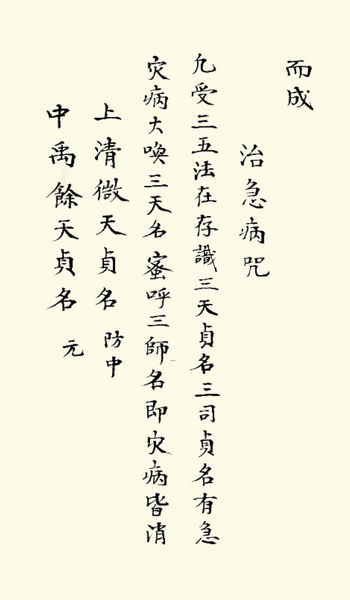 而成
治急病咒
凢受三五法在存識三天貞名三司貞名有急
灾病大喚三天名蜜呼三師名即灾病皆消
上清微天貞名 防中
中禹餘天貞名 元